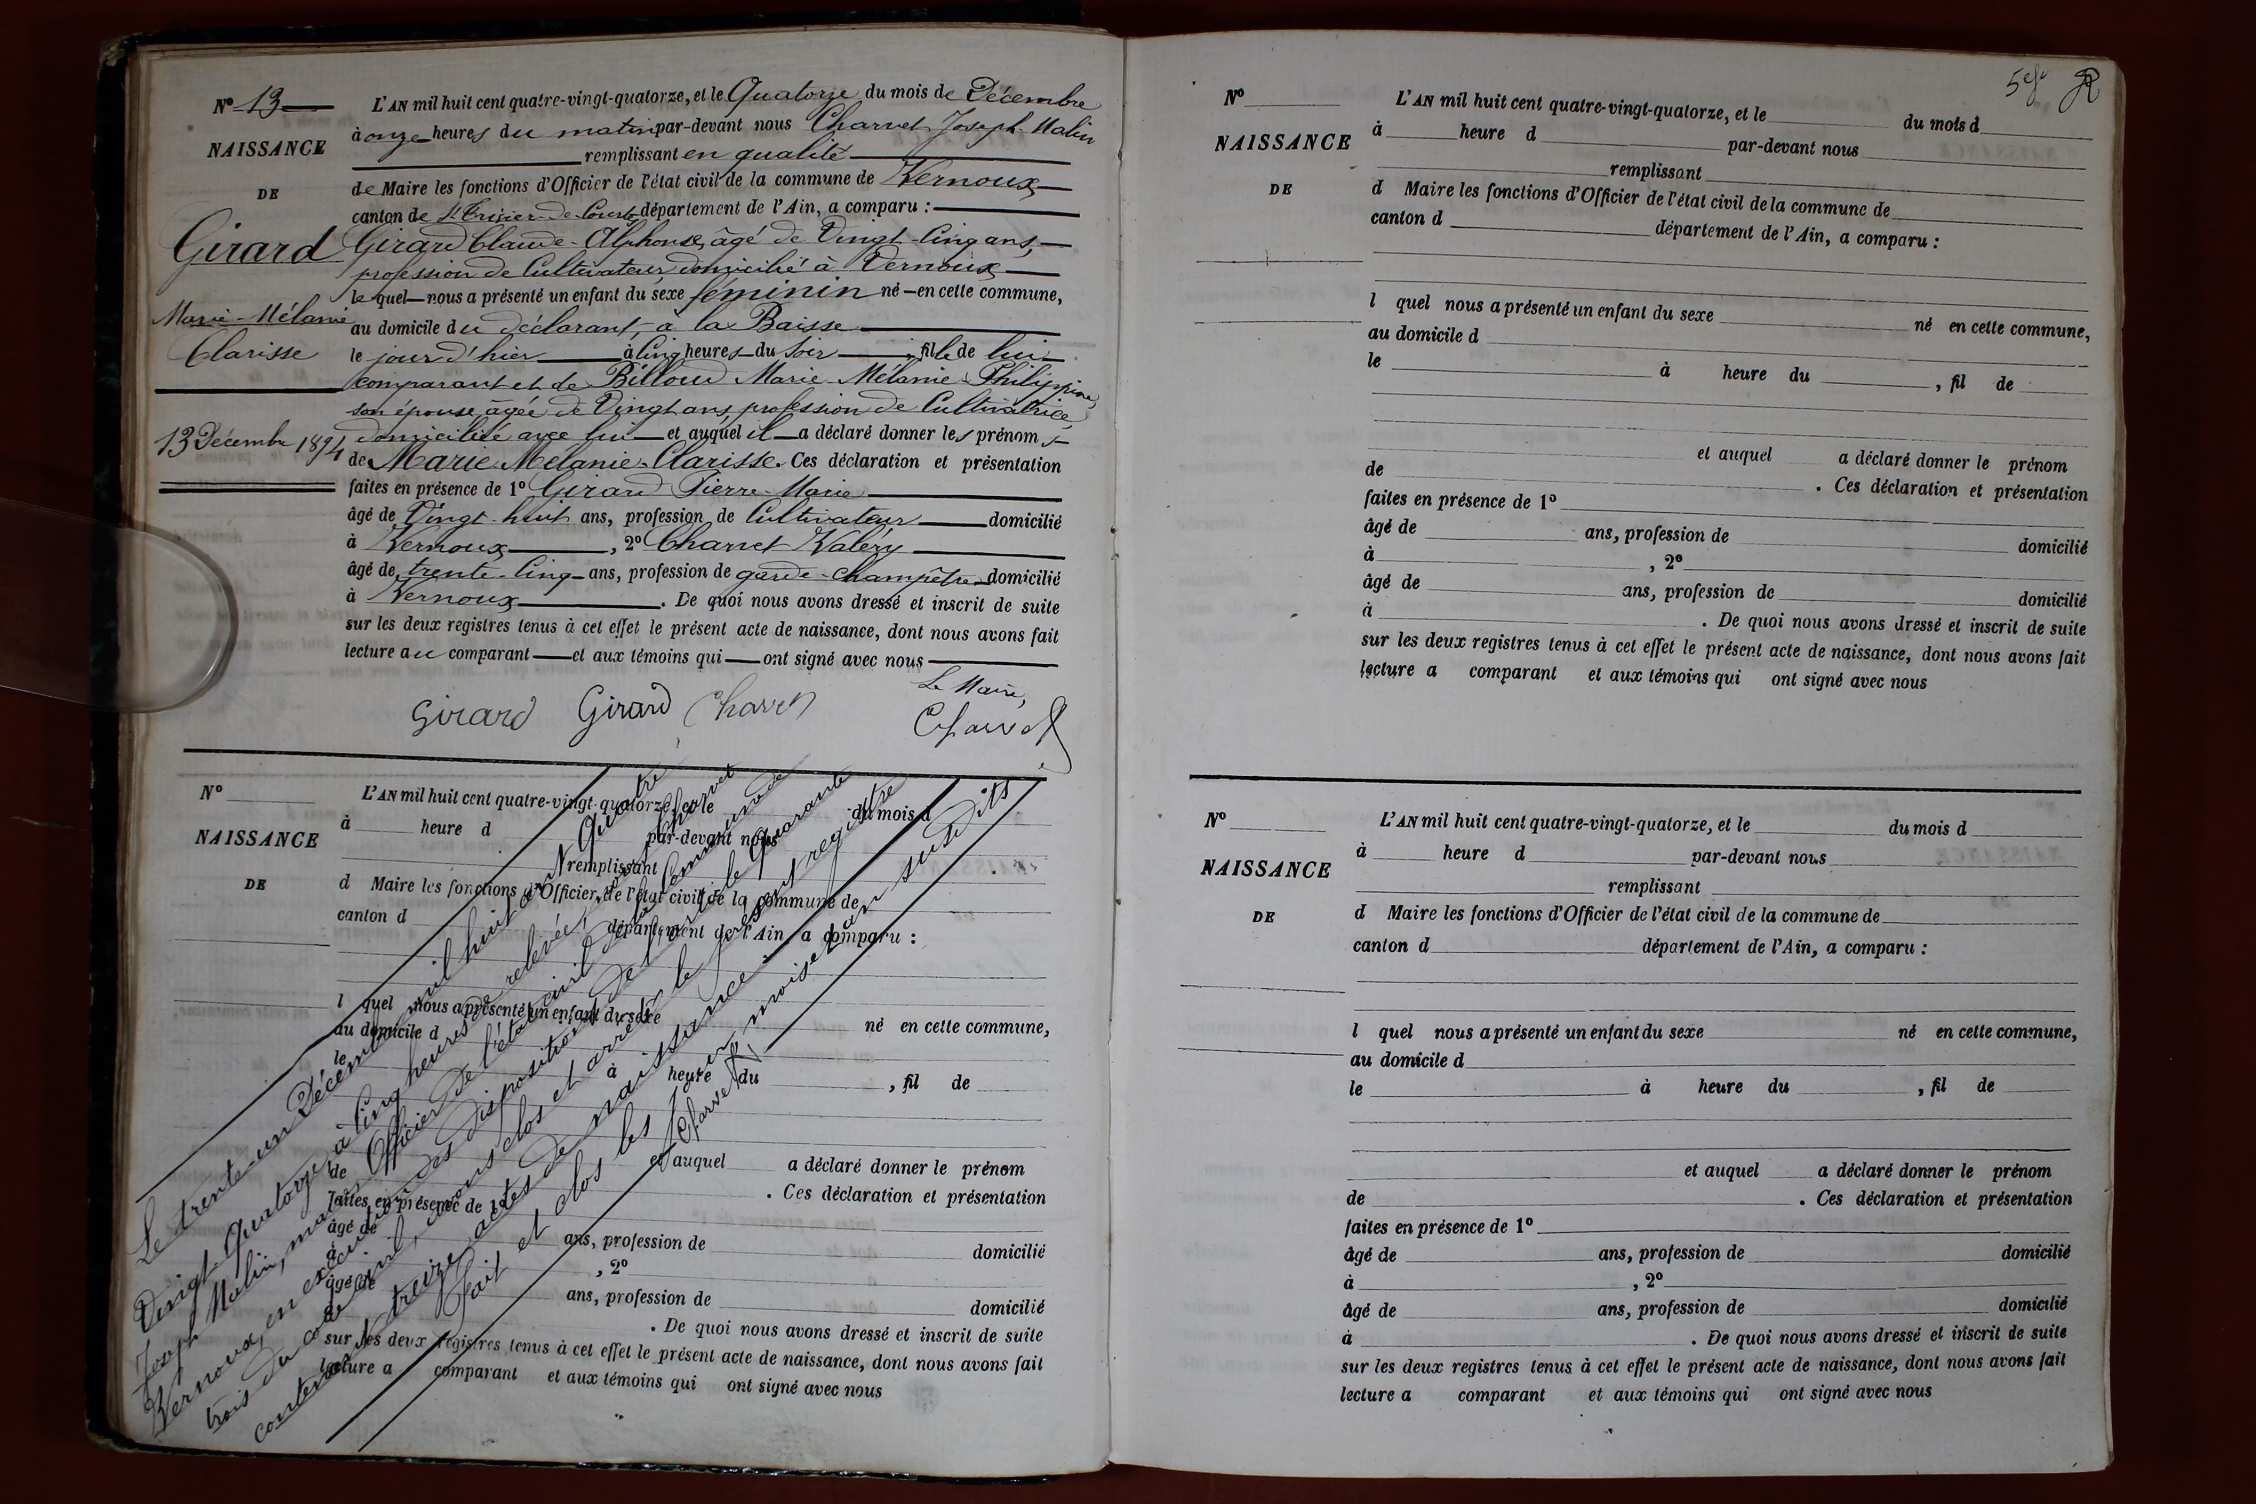 N° 13
NAISSANCE
DE
Girard
Marie-Mélanie
Clarisse
13 Décembre 1894
L'AN mil huit cent quatre-vingt-quatorze, et le Quatorze du mois de Décembre
à onze heures du matin par-devant nous Charvet Joseph Malin
remplissant en qualité
de Maire les fonctions d'Officier de l'état civil de la commune de Vernoux
canton de St Trivier-de-Courtes département de l'Ain, a comparu :
Girard Claude-Alphonse, âgé de Vingt-Cinq ans,
profession de Cultivateur, domicilié à Vernoux
lequel nous a présenté un enfant du sexe féminin né en cette commune,
au domicile du déclarant, à la Baisse
le jour d'hier à Cinq heures du soir, fille de lui
comparant et de Billoud Marie-Mélanie-Philippine,
son épouse, âgée de Vingt ans, profession de Cultivatrice,
domiciliée avec lui et auquel il a déclaré donner les prénoms
de Marie-Mélanie-Clarisse. Ces déclaration et présentation
faites en présence de 1° Girard Pierre-Marie
âgé de Vingt-huit ans, profession de Cultivateur domicilié
à Vernoux, 2° Charvet Valéry
âgé de trente-Cinq ans, profession de garde-champêtre domicilié
à Vernoux. De quoi nous avons dressé et inscrit de suite
sur les deux registres tenus à cet effet le présent acte de naissance, dont nous avons fait
lecture au comparant et aux témoins qui ont signé avec nous
Le Maire,
Girard Girard Charvet Charvet
N°
NAISSANCE
DE
L'AN mil huit cent quatre-vingt-quatorze, et le du mois d
à heure d par-devant nous
remplissant
d Maire les fonctions d'Officier de l'état civil de la commune de
canton d département de l'Ain, a comparu :
l quel nous a présenté un enfant du sexe né en cette commune,
au domicile d
le à heure du , fil de
et auquel a déclaré donner le prénom
de . Ces déclaration et présentation
faites en présence de 1°
âgé de ans, profession de domicilié
à , 2°
âgé de ans, profession de domicilié
à . De quoi nous avons dressé et inscrit de suite
sur les deux registres tenus à cet effet le présent acte de naissance, dont nous avons fait
lecture a comparant et aux témoins qui ont signé avec nous
Le trente-un Décembre mil huit cent Quatre
Vingt-Quatorze, à Cinq heures de relevée, nous Charvet
Joseph Malin, maire Officier de l'état civil de la Commune de
Vernoux, en exécution des dispositions de l'article Quarante
trois du code civil, avons clos et arrêté le présent registre
contenant treize actes de naissance
Fait et clos les jour, mois et an susdits
Charvet
N°
NAISSANCE
DE
L'AN mil huit cent quatre-vingt-quatorze, et le du mois d
à heure d par-devant nous
remplissant
d Maire les fonctions d'Officier de l'état civil de la commune de
canton d département de l'Ain, a comparu :
l quel nous a présenté un enfant du sexe né en cette commune,
au domicile d
le à heure du , fil de
et auquel a déclaré donner le prénom
de . Ces déclaration et présentation
faites en présence de 1°
âgé de ans, profession de domicilié
à , 2°
âgé de ans, profession de domicilié
à . De quoi nous avons dressé et inscrit de suite
sur les deux registres tenus à cet effet le présent acte de naissance, dont nous avons fait
lecture a comparant et aux témoins qui ont signé avec nous
N°
NAISSANCE
DE
L'AN mil huit cent quatre-vingt-quatorze, et le du mois d
à heure d par-devant nous
remplissant
d Maire les fonctions d'Officier de l'état civil de la commune de
canton d département de l'Ain, a comparu :
l quel nous a présenté un enfant du sexe né en cette commune,
au domicile d
le à heure du , fil de
et auquel a déclaré donner le prénom
de . Ces déclaration et présentation
faites en présence de 1°
âgé de ans, profession de domicilié
à , 2°
âgé de ans, profession de domicilié
à . De quoi nous avons dressé et inscrit de suite
sur les deux registres tenus à cet effet le présent acte de naissance, dont nous avons fait
lecture a comparant et aux témoins qui ont signé avec nous